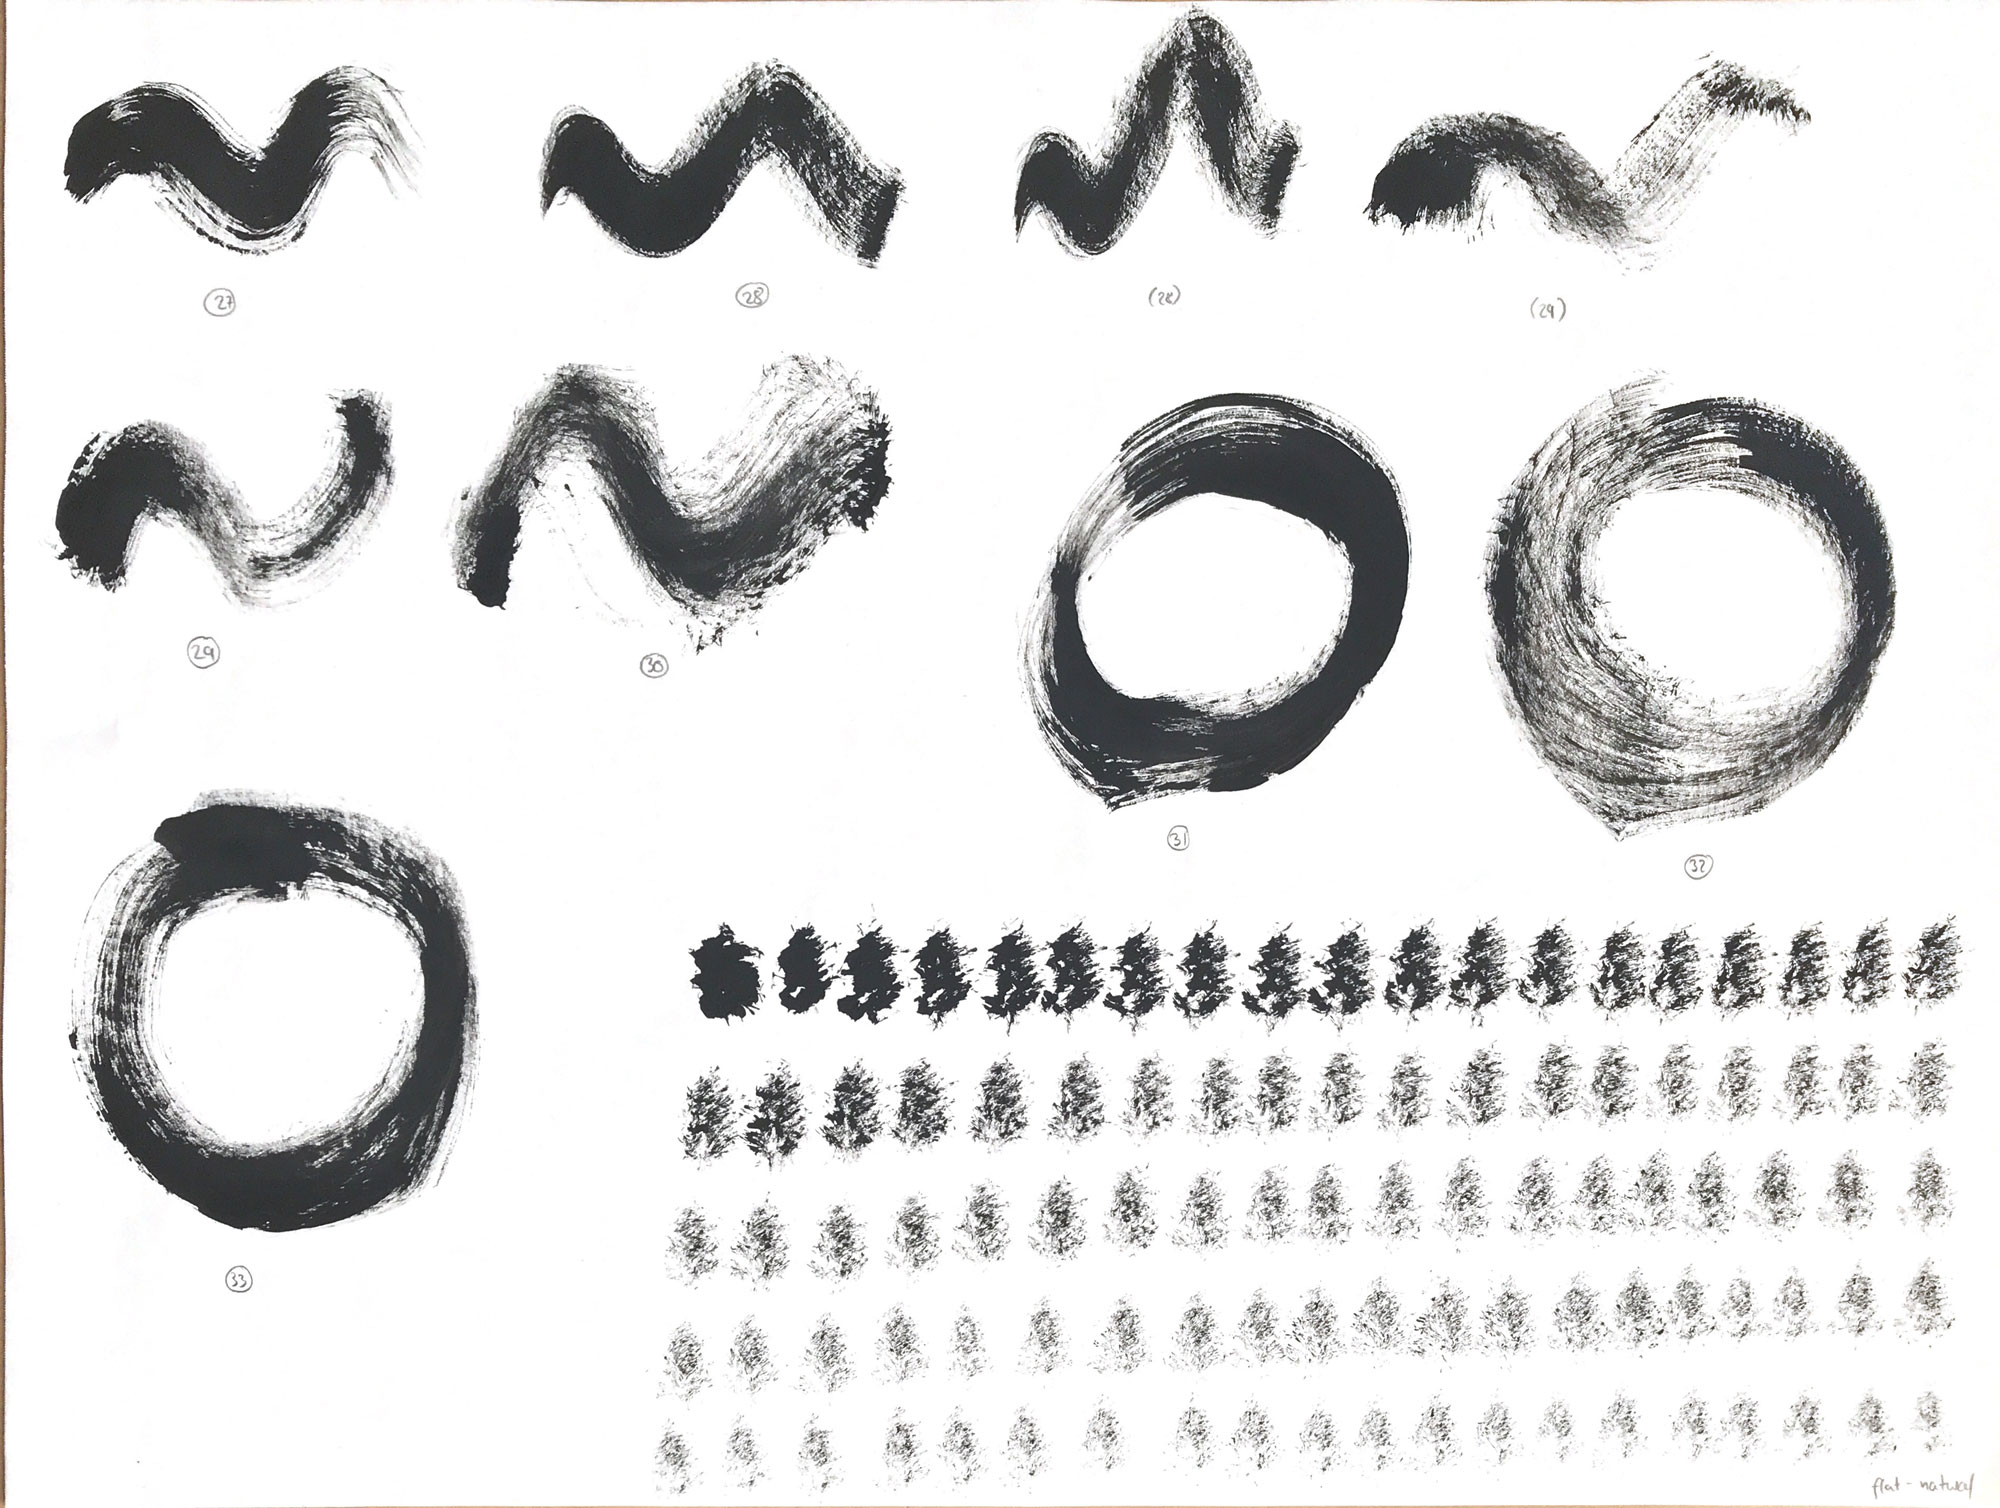 27
28
(28)
(29)
29
30
31
32
33
flat - natural